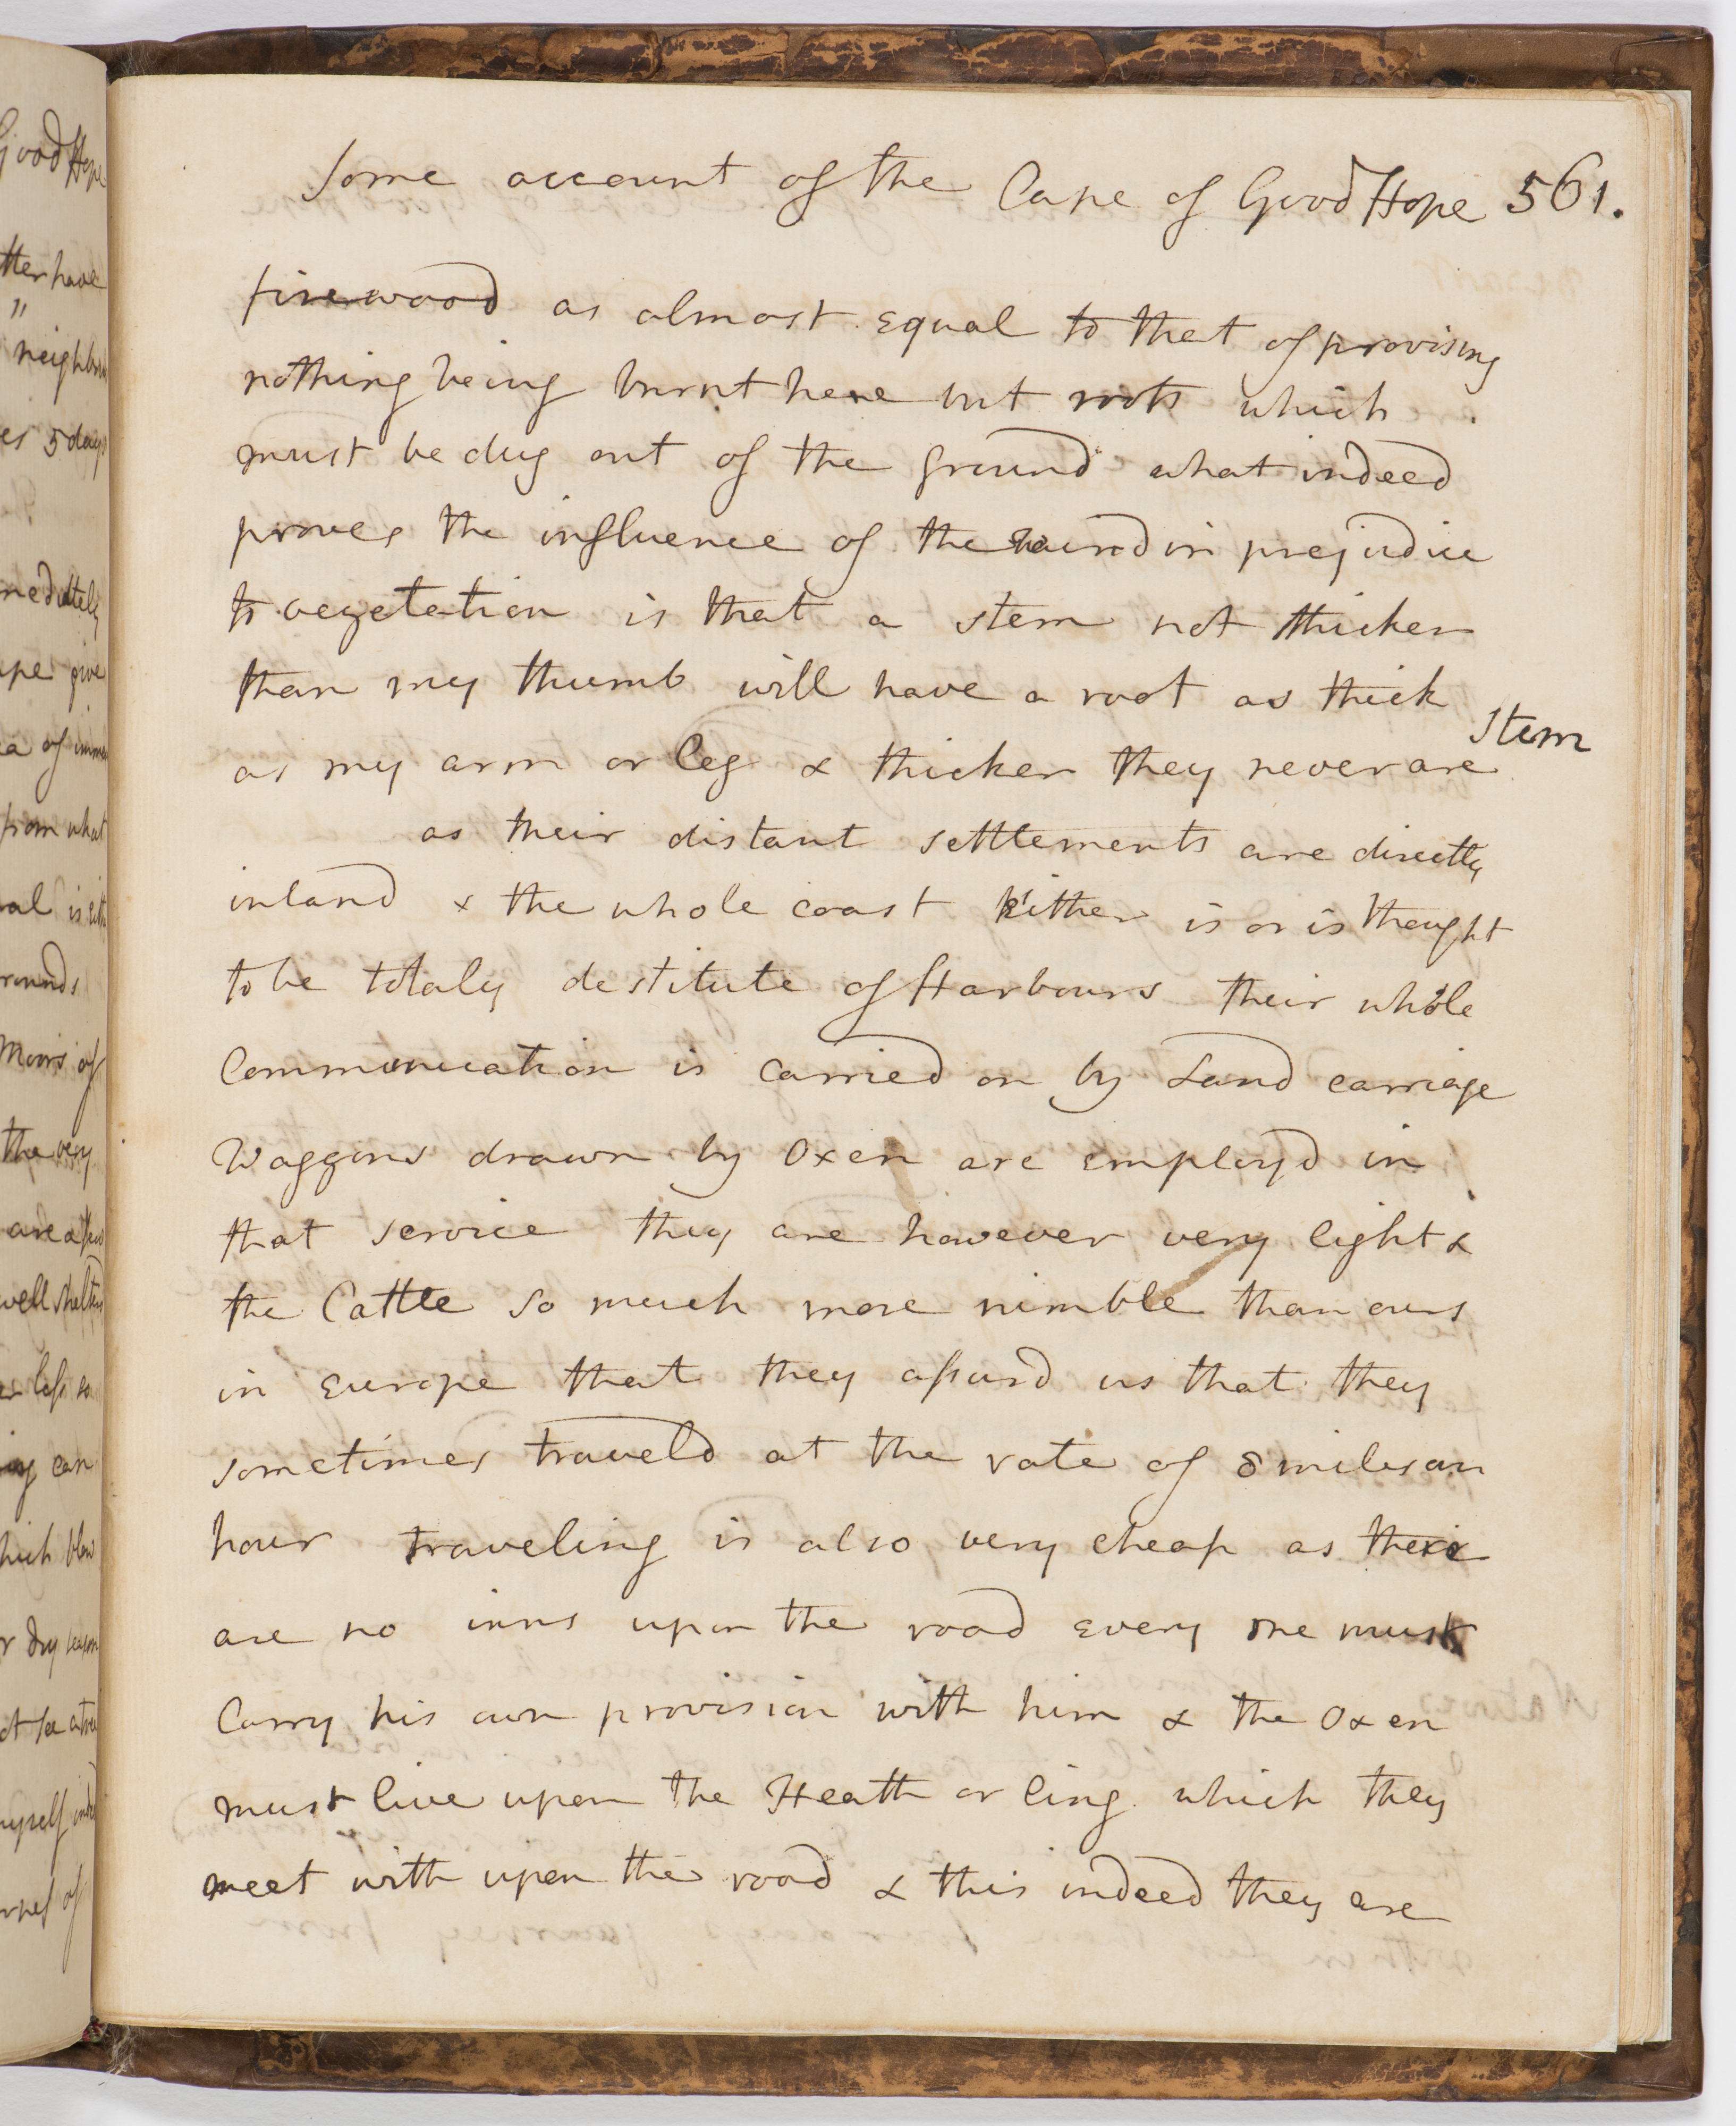 Good Hope
tter have
"
neighbou
es 5 days
nediately
ape give
ea of imme
from what
al is eith
rounds
Moors of
the very
well shelter
less so
ing can
hich blow
r dry season
ot see a tree
myself inde
Some account of the Cape of Good Hope 561.
firewood as almost equal to that of provising
nothing being burnt here but roots which
must be dug out of the ground what indeed
proves the influence of the wind in prejudice
to vegetation is that a stem not thicker
than my thumb will have a root as thick
stem
as my arm or leg & thicker they never are
as their distant settlements are directly
inland & the whole coast hither is or is thought
to be totaly destitute of Harbours their whole
Communication is carried on by Land carriage
Waggons drawn by Oxen are employd in
that service they are however very light &
the Cattle so much more nimble than ours
in Europe that they assurd us that they
sometimes traveld at the rate of 8 miles an
hour traveling is also very cheap as there
are no inns upon the road every one must
Carry his own provision with him & the Oxen
must live upon the Heath or ling which they
meet with upon the road & this indeed they are